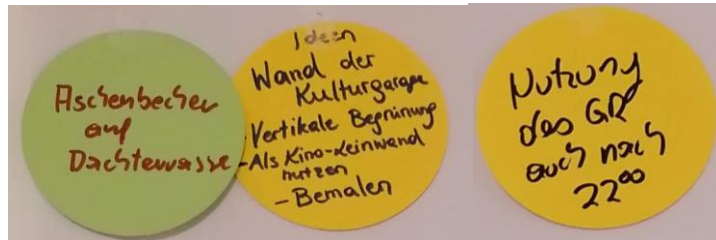 Aschenbecher
auf
Dachterrasse
Ideen
Wand der
Kulturgarage
- Vertikale Begrünung
- Als Kino-Leinwand
nutzen
- Bemalen
Nutzung
des GR
auch nach
22⁰⁰